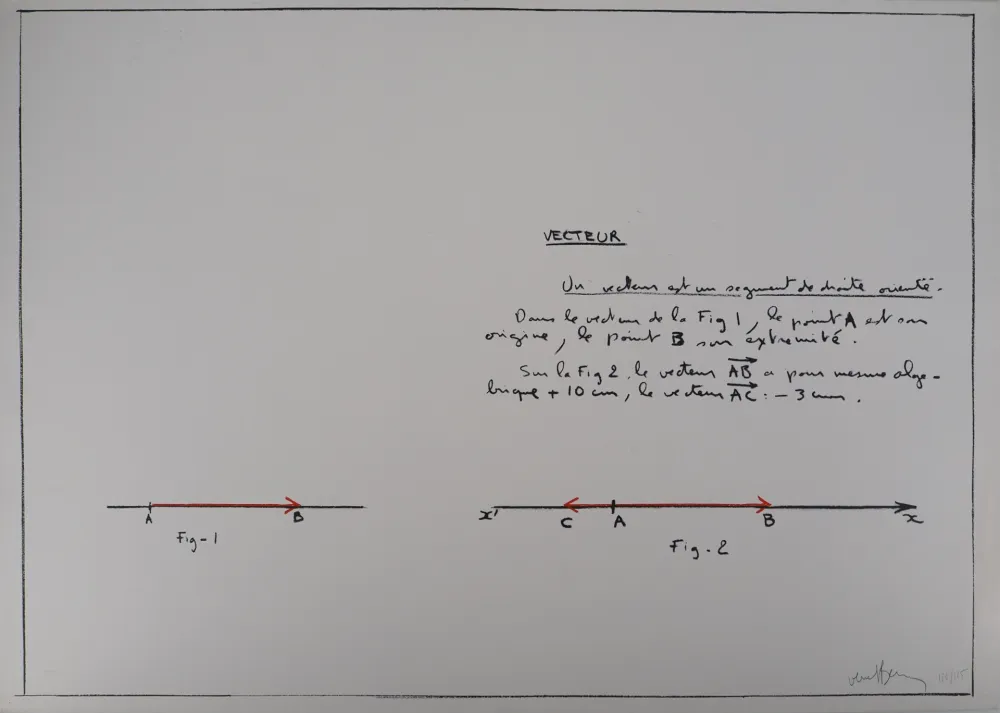 VECTEUR
Un vecteur est un segment de droite orienté.
Dans le vecteur de la Fig 1, le point A est son
origine, le point B son extremité.
Sur la Fig 2, le vecteur AB a pour mesure alge-
brique + 10 cm, le vecteur AC : - 3 cm.
A B
x' C A B x
Fig-1
Fig-2